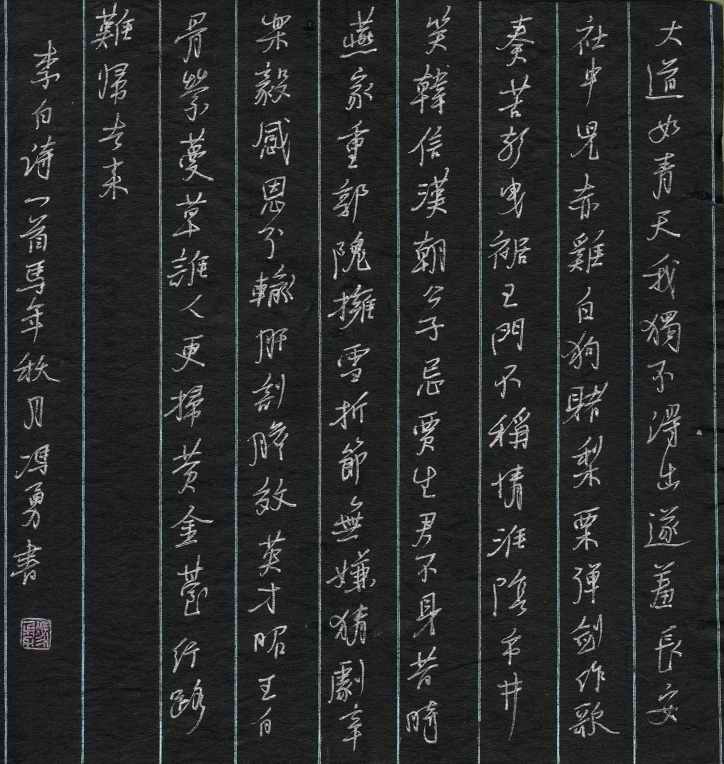 大道如青天我獨不得出遂羞長安
社中兒赤雞白狗賭梨栗彈劍作歌
奏苦聲曳裾王門不稱情淮陰市井
笑韓信漢朝公子忌賈生君不見昔時
燕家重郭隗擁雪折節無嫌猜劇辛
樂毅感恩分輸肝剖膽效英才昭王白
骨縈蔓草誰人更掃黃金臺行路
難歸去來
李白詩一首馬年秋月馮勇書